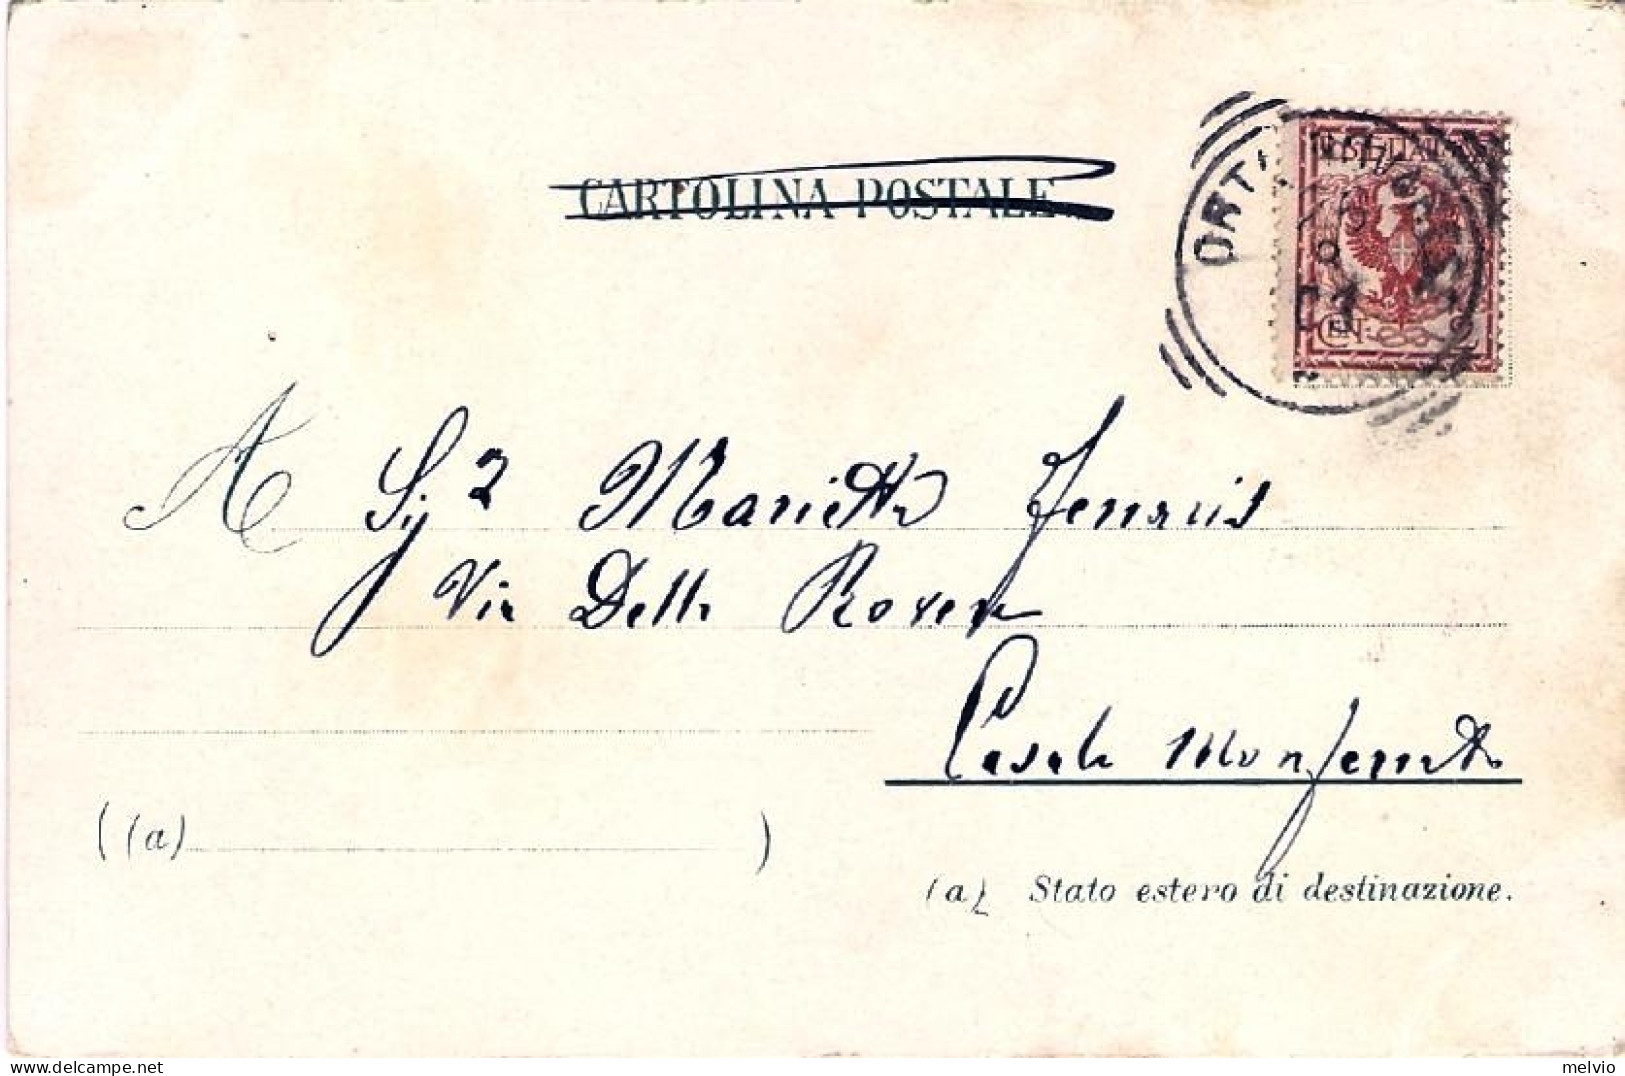 CARTOLINA POSTALE
POSTE ITALIANE
CEN. 2
A Sig.a Marietta Ferraris
Via Della Rovere
Casale Monferrato
((a) )
(a) Stato estero di destinazione.
melvio